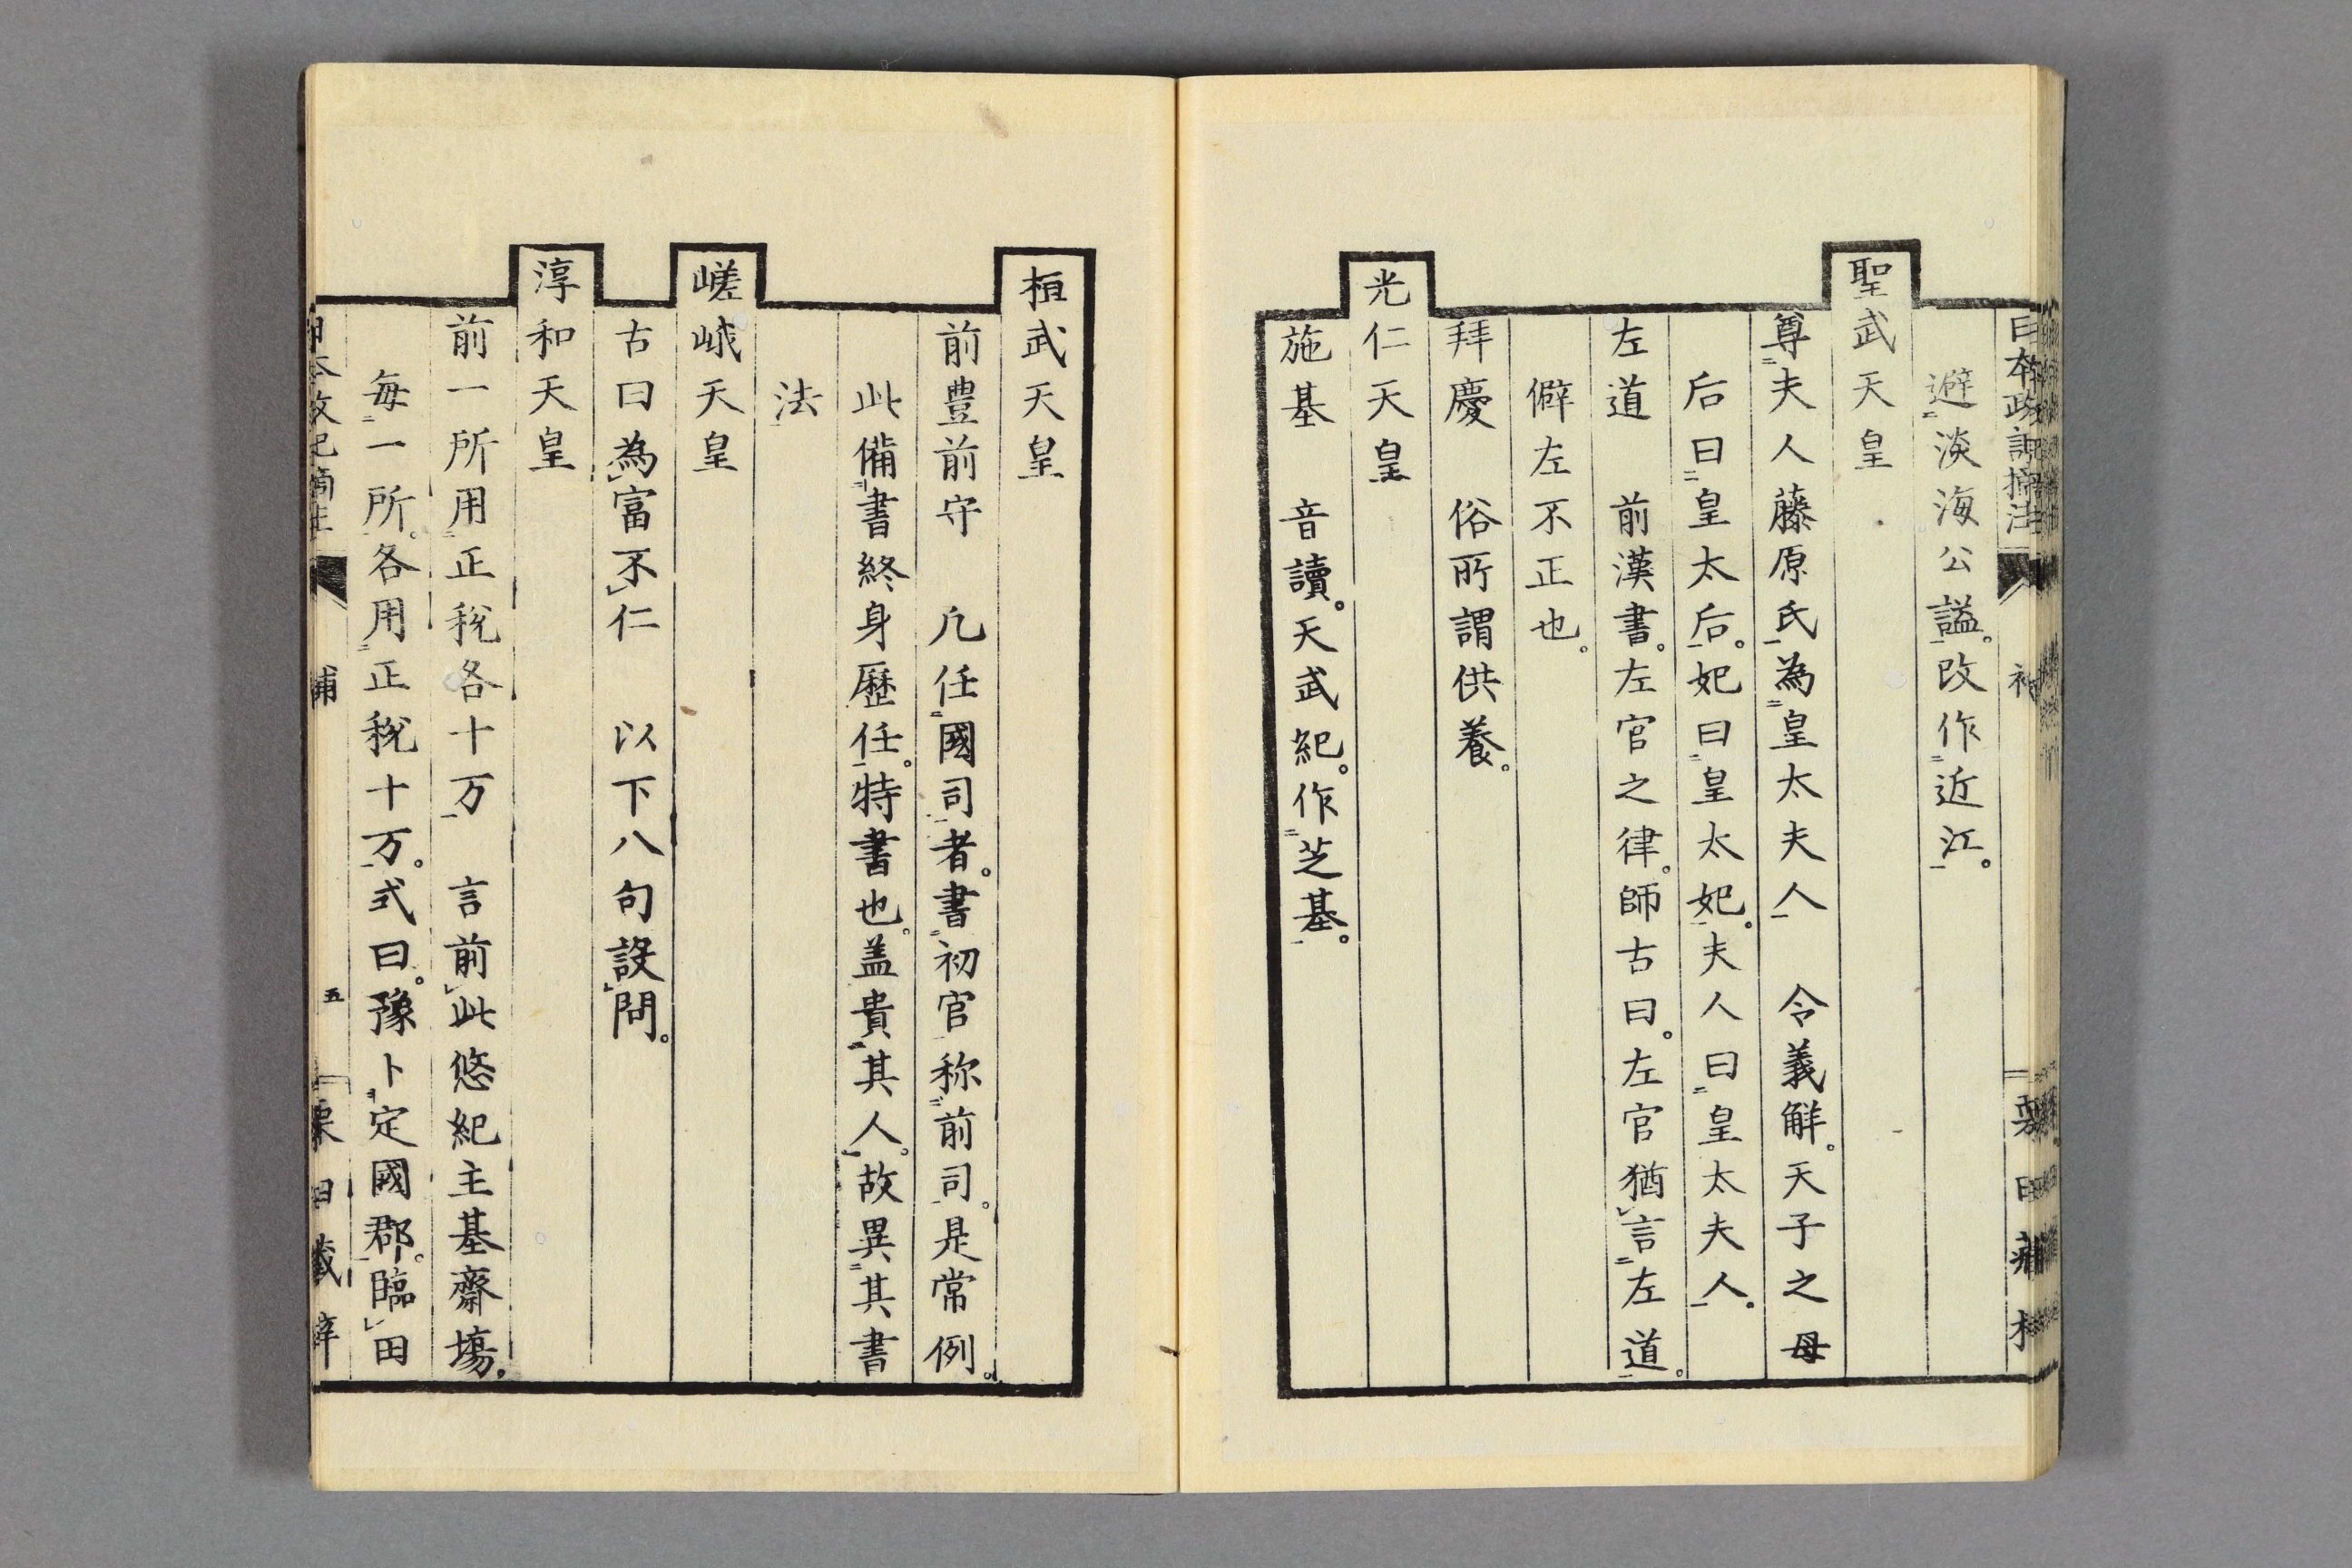 日本政記摘注
補
避淡海公謚。改作近江。
聖武天皇
尊夫人藤原氏為皇太夫人　令義解。天子之母
后曰皇太后。妃曰皇太妃。夫人曰皇太夫人。
左道　前漢書。左官之律。師古曰。左官猶言左道。
僻左不正也。
拜慶　俗所謂供養。
光仁天皇
施基　音讀。天武紀。作芝基。
桓武天皇
前豊前守　凡任國司者。書初官称前司。是常例。
此備書終身歷任。特書也。盖貴其人。故異其書
法
嵯峨天皇
古曰為富不仁　以下八句設問。
淳和天皇
前一所用正税各十万　言前此悠紀主基齋場。
每一所。各用正税十万。式曰。豫卜定國郡。臨田
補
五